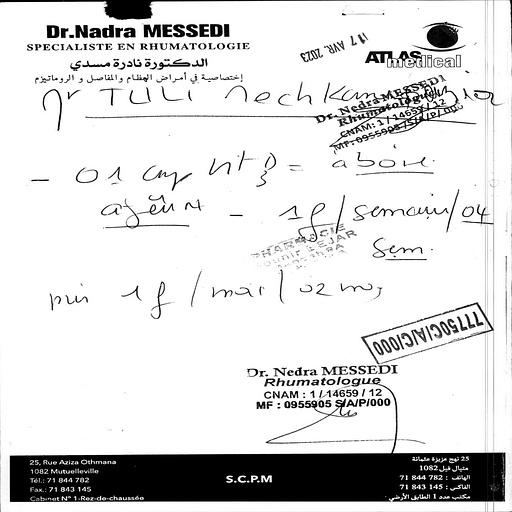 Dr.Nadra MESSEDI
SPECIALISTE EN RHUMATOLOGIE
الدكتورة نادرة مسدي
إختصاصية في أمراض العظام والمفاصل و الروماتيزم
17 AVR. 2023
ATLAS
medical
Dr. Nedra MESSEDI
Rhumatologue
CNAM: 1 / 14659 / 12
MF: 0955905 S/A/P/000
Mr TLILI
- 01 amp vit D3 = à boire
à jeun - 1f/semain/04
Sem.
PHARMACIE
puis 1f/mois/02 mois
77750C/A/C/000
Dr. Nedra MESSEDI
Rhumatologue
CNAM : 1 / 14659 / 12
MF : 0955905 S/A/P/000
25, Rue Aziza Othmana
1082 Mutuelleville
Tél.: 71 844 782
Fax.: 71 843 145
Cabinet N° 1-Rez-de-chaussée
S.C.P.M
25 نهج عزيزة عثمانة
متيال فيل 1082
الهاتف : 782 844 71
الفاكس : 145 843 71
مكتب عدد 1 الطابق الأرضي